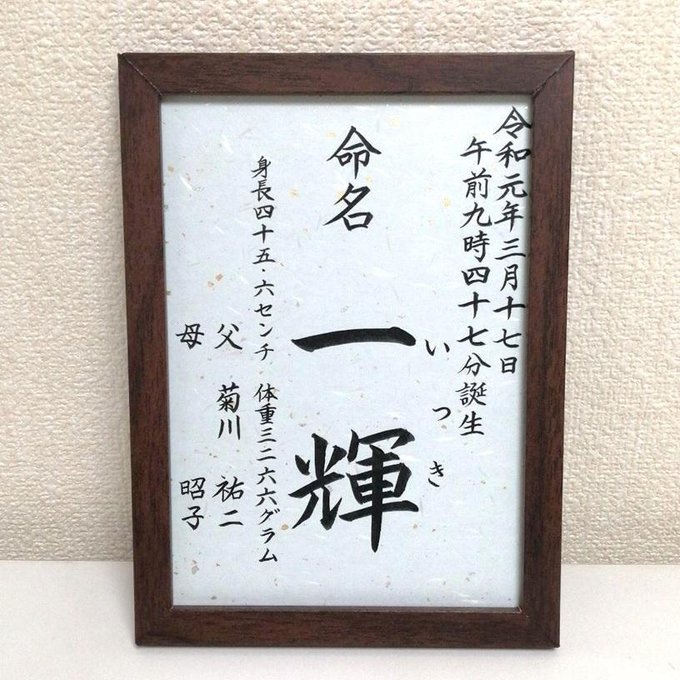 令和元年三月十七日
午前九時四十七分誕生
命名 一輝
いっき
身長四十五・六センチ 体重三二六六グラム
父 菊川 祐二
母 昭子